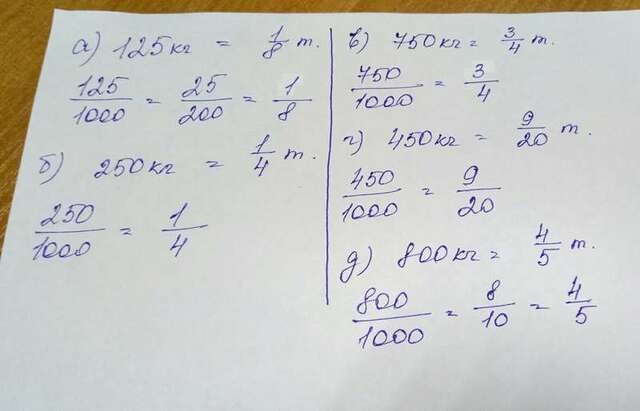 а) 125 кг = 1/8 т.
125/1000 = 25/200 = 1/8
б) 250 кг = 1/4 т.
250/1000 = 1/4
в) 750 кг = 3/4 т.
750/1000 = 3/4
г) 450 кг = 9/20 т.
450/1000 = 9/20
д) 800 кг = 4/5 т.
800/1000 = 8/10 = 4/5